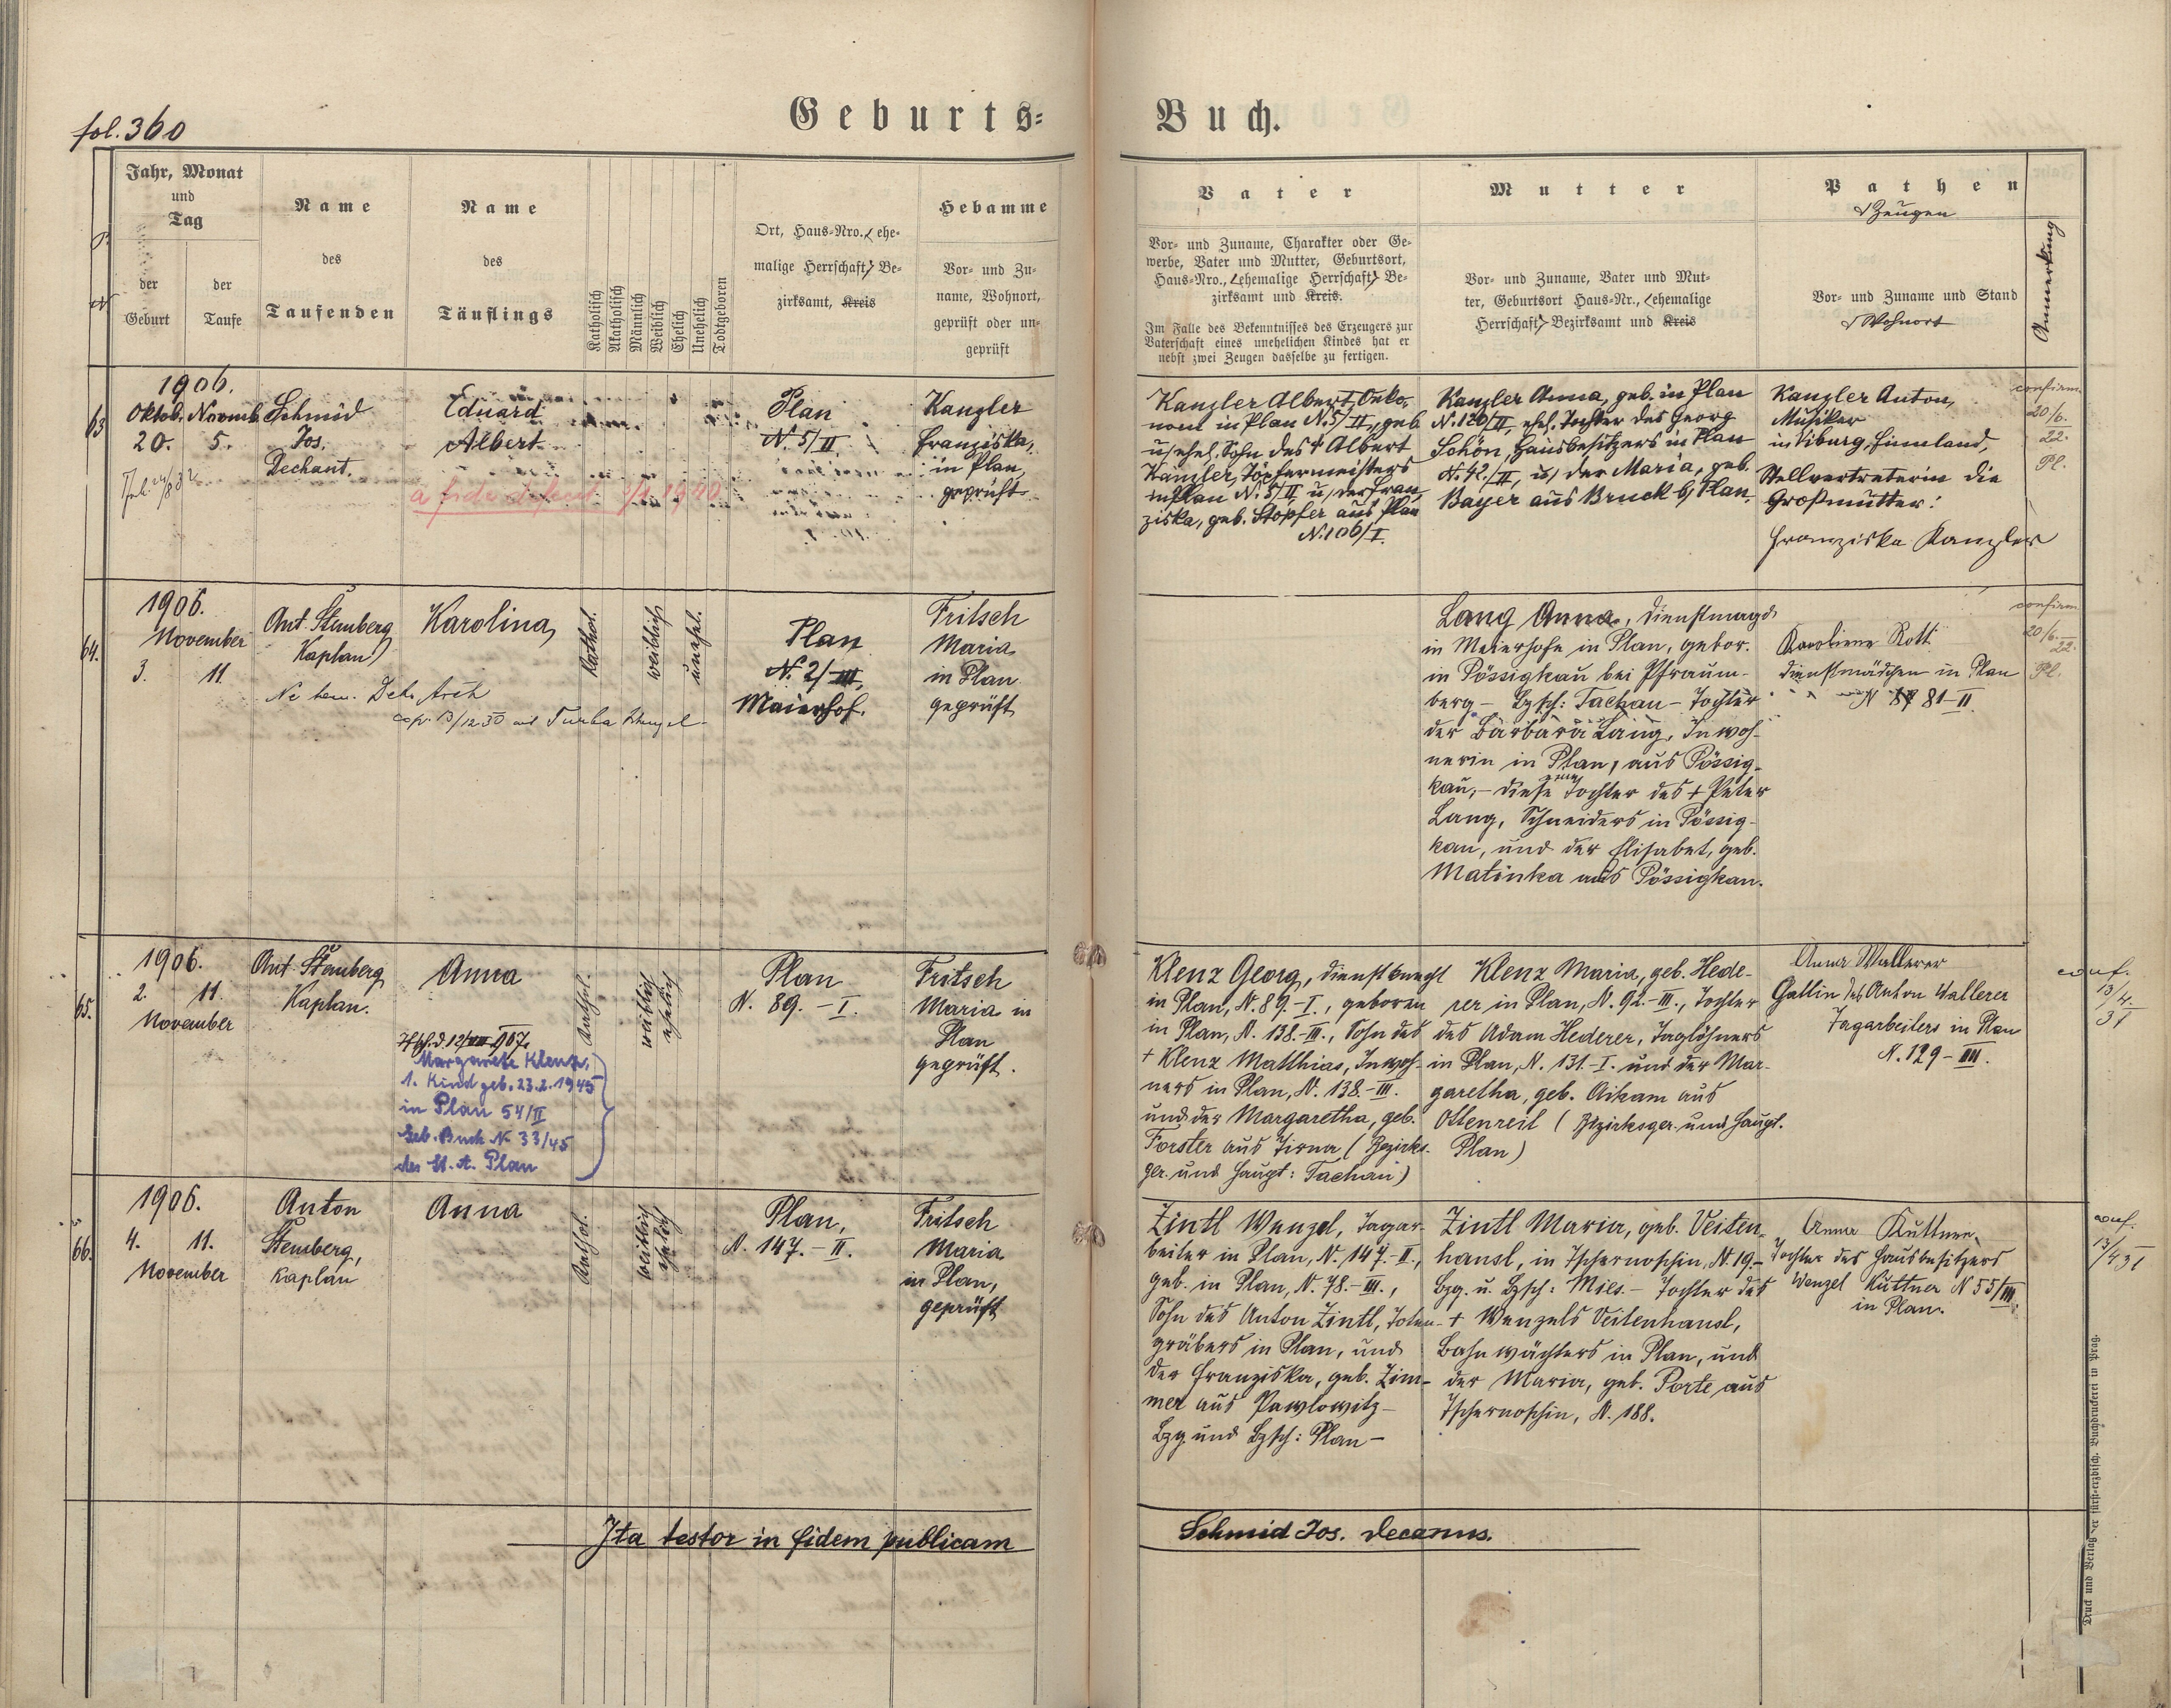 fol. 360
Geburts=
Buch.
Jahr, Monat
und
Tag
der
Geburt
der
Taufe
Name
des
Taufenden
Name
des
Täuflings
Katholisch
Akatholisch
Männlich
Weiblich
Ehelich
Unehelich
Todtgeboren
Ort, Haus=Nro. (ehe=
malige Herrschaft) Be=
zirksamt, Kreis
Hebamme
Vor= und Zu=
name, Wohnort,
geprüft oder un=
geprüft
Vater
Vor= und Zuname, Charakter oder Ge=
werbe, Vater und Mutter, Geburtsort,
Haus=Nro., (ehemalige Herrschaft) Be=
zirksamt und Kreis.
Im Falle des Bekenntnisses des Erzeugers zur
Vaterschaft eines unehelichen Kindes hat er
nebst zwei Zeugen dasselbe zu fertigen.
Mutter
Vor= und Zuname, Vater und Mut=
ter, Geburtsort Haus=Nr., (ehemalige
Herrschaft) Bezirksamt und Kreis
Pathen
Zeugen
Vor= und Zuname und Stand
Wohnort
Anmerkung
63
1906.
Oktob. Novemb.
20. 5.
Schmid
Jos.
Dechant.
Eduard
Albert
a fide defecit 1940
Plan
N. 5/II
Kanzler
Franziska,
in Plan,
geprüft
Kanzler Albert, Oeko-
nom in Plan N. 5/II, geb.
u. ehel. Sohn des † Albert
Kanzler, Töpfermeisters
in Plan N. 5/II, u. der Fran-
ziska, geb. Stopfer aus Plan
N. 106/I.
Kanzler Anna, geb. in Plan
N. 120/II, ehel. Tochter des Georg
Schön, Hausbesitzers in Plan
N. 42./II, u. der Maria, geb.
Bayer aus Bruck b/ Plan.
Kanzler Anton,
Musiker
in Viburg, Finnland,
Stellvertreterin die
Großmutter:
Franziska Kanzler
confirm.
20/6.
22.
Pl.
64.
1906.
November
3. 11.
Ant. Štemberg
Kaplan
Karolina
Kathol.
weiblich
unehel.
Plan
N. 2/III,
Maierhof.
Fritsch
Maria
in Plan
geprüft
Lang Anna, Dienstmagd
in Meierhofe in Plan, gebor.
in Pössigkau bei Pfraum-
berg – Bzsch: Tachau – Tochter
der Barbara Lang, Inwoh-
nerin in Plan, aus Pössig-
kau, – diese eine Tochter des † Peter
Lang, Schneiders in Pössig-
kau, und der Elisabet, geb.
Matinka aus Pössigkau.
Karoline Rott
Dienstmädchen in Plan
N 81–II
confirm.
20/6.
22.
Pl.
65.
1906.
2. 11.
November
Ant. Štemberg
Kaplan.
Anna
Margarete Klenz,
1. Kind geb. 23.2.1945
in Plan 54/II
Geb. Buch N. 33/45
des St. A. Plan
Kathol.
weiblich
ehelich
Plan
N. 89. – I.
Fritsch
Maria in
Plan
geprüft.
Klenz Georg, Dienstknecht
in Plan, N. 89. – I., geboren
in Plan, N. 138. – III., Sohn des
† Klenz Matthias, Inwoh-
ners in Plan, N. 138. – III.
und der Margaretha, geb.
Forster aus Tirna (Bezirks-
ger. und Haupt: Tachau)
Klenz Maria, geb. Hede-
rer in Plan, N. 92. – III., Tochter
des Adam Hederer, Taglöhners
in Plan, N. 131. – I. und der Mar-
garetha, geb. Aikam aus
Ottenreit (Bezirksger. und Haupt.
Plan)
Anna Wallerer
Gattin des Anton Wallerer
Tagarbeiters in Plan
N. 129 – III.
conf.
13/4.
31
66.
1906.
4. 11.
November
Anton
Štemberg,
Kaplan
Anna
Kathol.
weiblich
ehelich
Plan,
N. 147. – II.
Fritsch
Maria
in Plan,
geprüft
Zintl Wenzel, Tagar-
beiter in Plan, N. 147. – II.,
geb. in Plan, N. 78. – III.,
Sohn des Anton Zintl, Toten-
gräbers in Plan, und
der Franziska, geb. Zim-
mer aus Pawlowitz –
Bzg. und Bzsch: Plan –
Zintl Maria, geb. Veiten-
hansl, in Tschernoschin, N. 19. –
Bzg. u. Bzsch: Mies. – Tochter des
† Wenzels Veitenhansl,
Bahnwächters in Plan, und
der Maria, geb. Porte aus
Tschernoschin, N. 188.
Anna Kuttner
Tochter des Hausbesitzers
Wenzel Kuttner N 55/III.
in Plan.
conf.
13/4 31
Ita testor in fidem publicam
Schmid Jos. Decanus.
Druck und Verlag der fürst=erzbisch. Buchdruckerei in Prag.